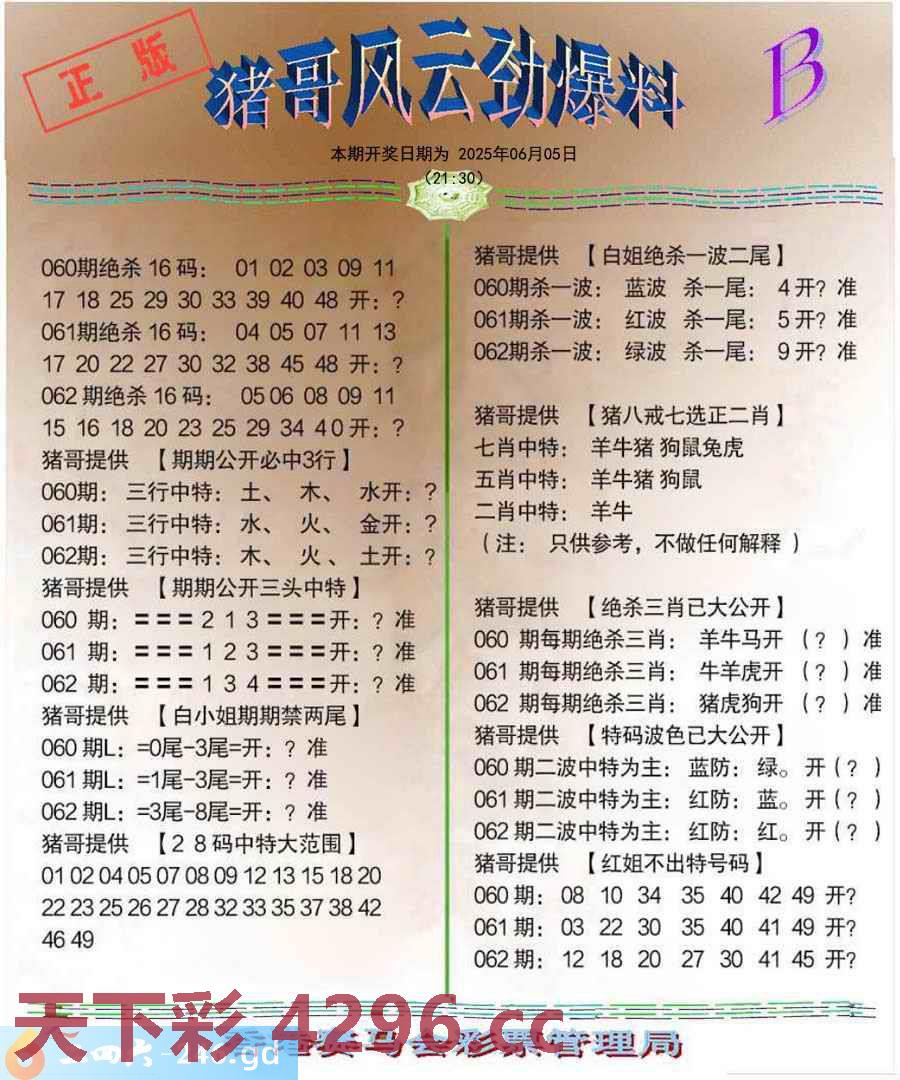 正版
猪哥风云劲爆料
B
本期开奖日期为 2025年06月05日
(21:30)
060期绝杀 16 码： 01 02 03 09 11
17 18 25 29 30 33 39 40 48 开：？
061期绝杀 16 码： 04 05 07 11 13
17 20 22 27 30 32 38 45 48 开：？
062 期绝杀 16 码： 05 06 08 09 11
15 16 18 20 23 25 29 34 4 0 开：？
猪哥提供 【期期公开必中3行】
060期： 三行中特： 土、 木、 水开：？
061期： 三行中特： 水、 火、 金开：？
062期： 三行中特： 木、 火、土开：？
猪哥提供 【期期公开三头中特】
060 期：＝＝＝2 1 3＝＝＝开：？准
061 期：＝＝＝1 2 3＝＝＝开：？准
062 期：＝＝＝1 3 4＝＝＝开：？准
猪哥提供 【白小姐期期禁两尾】
060 期L：=0尾-3尾=开：？准
061 期L：=1尾-3尾=开：？准
062 期L：=3尾-8尾=开：？准
猪哥提供 【2 8 码中特大范围】
01 02 04 05 07 08 09 12 13 15 18 20
22 23 25 26 27 28 32 33 35 37 38 42
46 49
猪哥提供 【白姐绝杀一波二尾】
060期杀一波： 蓝波 杀一尾： 4 开？准
061期杀一波： 红波 杀一尾： 5 开？准
062期杀一波： 绿波 杀一尾： 9 开？准
猪哥提供 【猪八戒七选正二肖】
七肖中特： 羊牛猪 狗鼠兔虎
五肖中特： 羊牛猪 狗鼠
二肖中特： 羊牛
（注： 只供参考，不做任何解释 ）
猪哥提供 【绝杀三肖已大公开】
060 期每期绝杀三肖： 羊牛马开 （？ ）准
061 期每期绝杀三肖： 牛羊虎开 （？ ）准
062 期每期绝杀三肖： 猪虎狗开 （？ ）准
猪哥提供 【特码波色已大公开】
060 期二波中特为主： 蓝防： 绿。 开（？ ）
061 期二波中特为主： 红防： 蓝。 开（？ ）
062 期二波中特为主： 红防： 红。 开（？ ）
猪哥提供 【红姐不出特号码】
060 期： 08 10 34 35 40 42 49 开?
061 期： 03 22 30 35 40 41 49 开?
062 期： 12 18 20 27 30 41 45 开?
天下彩 4296.cc
马会彩票管理局